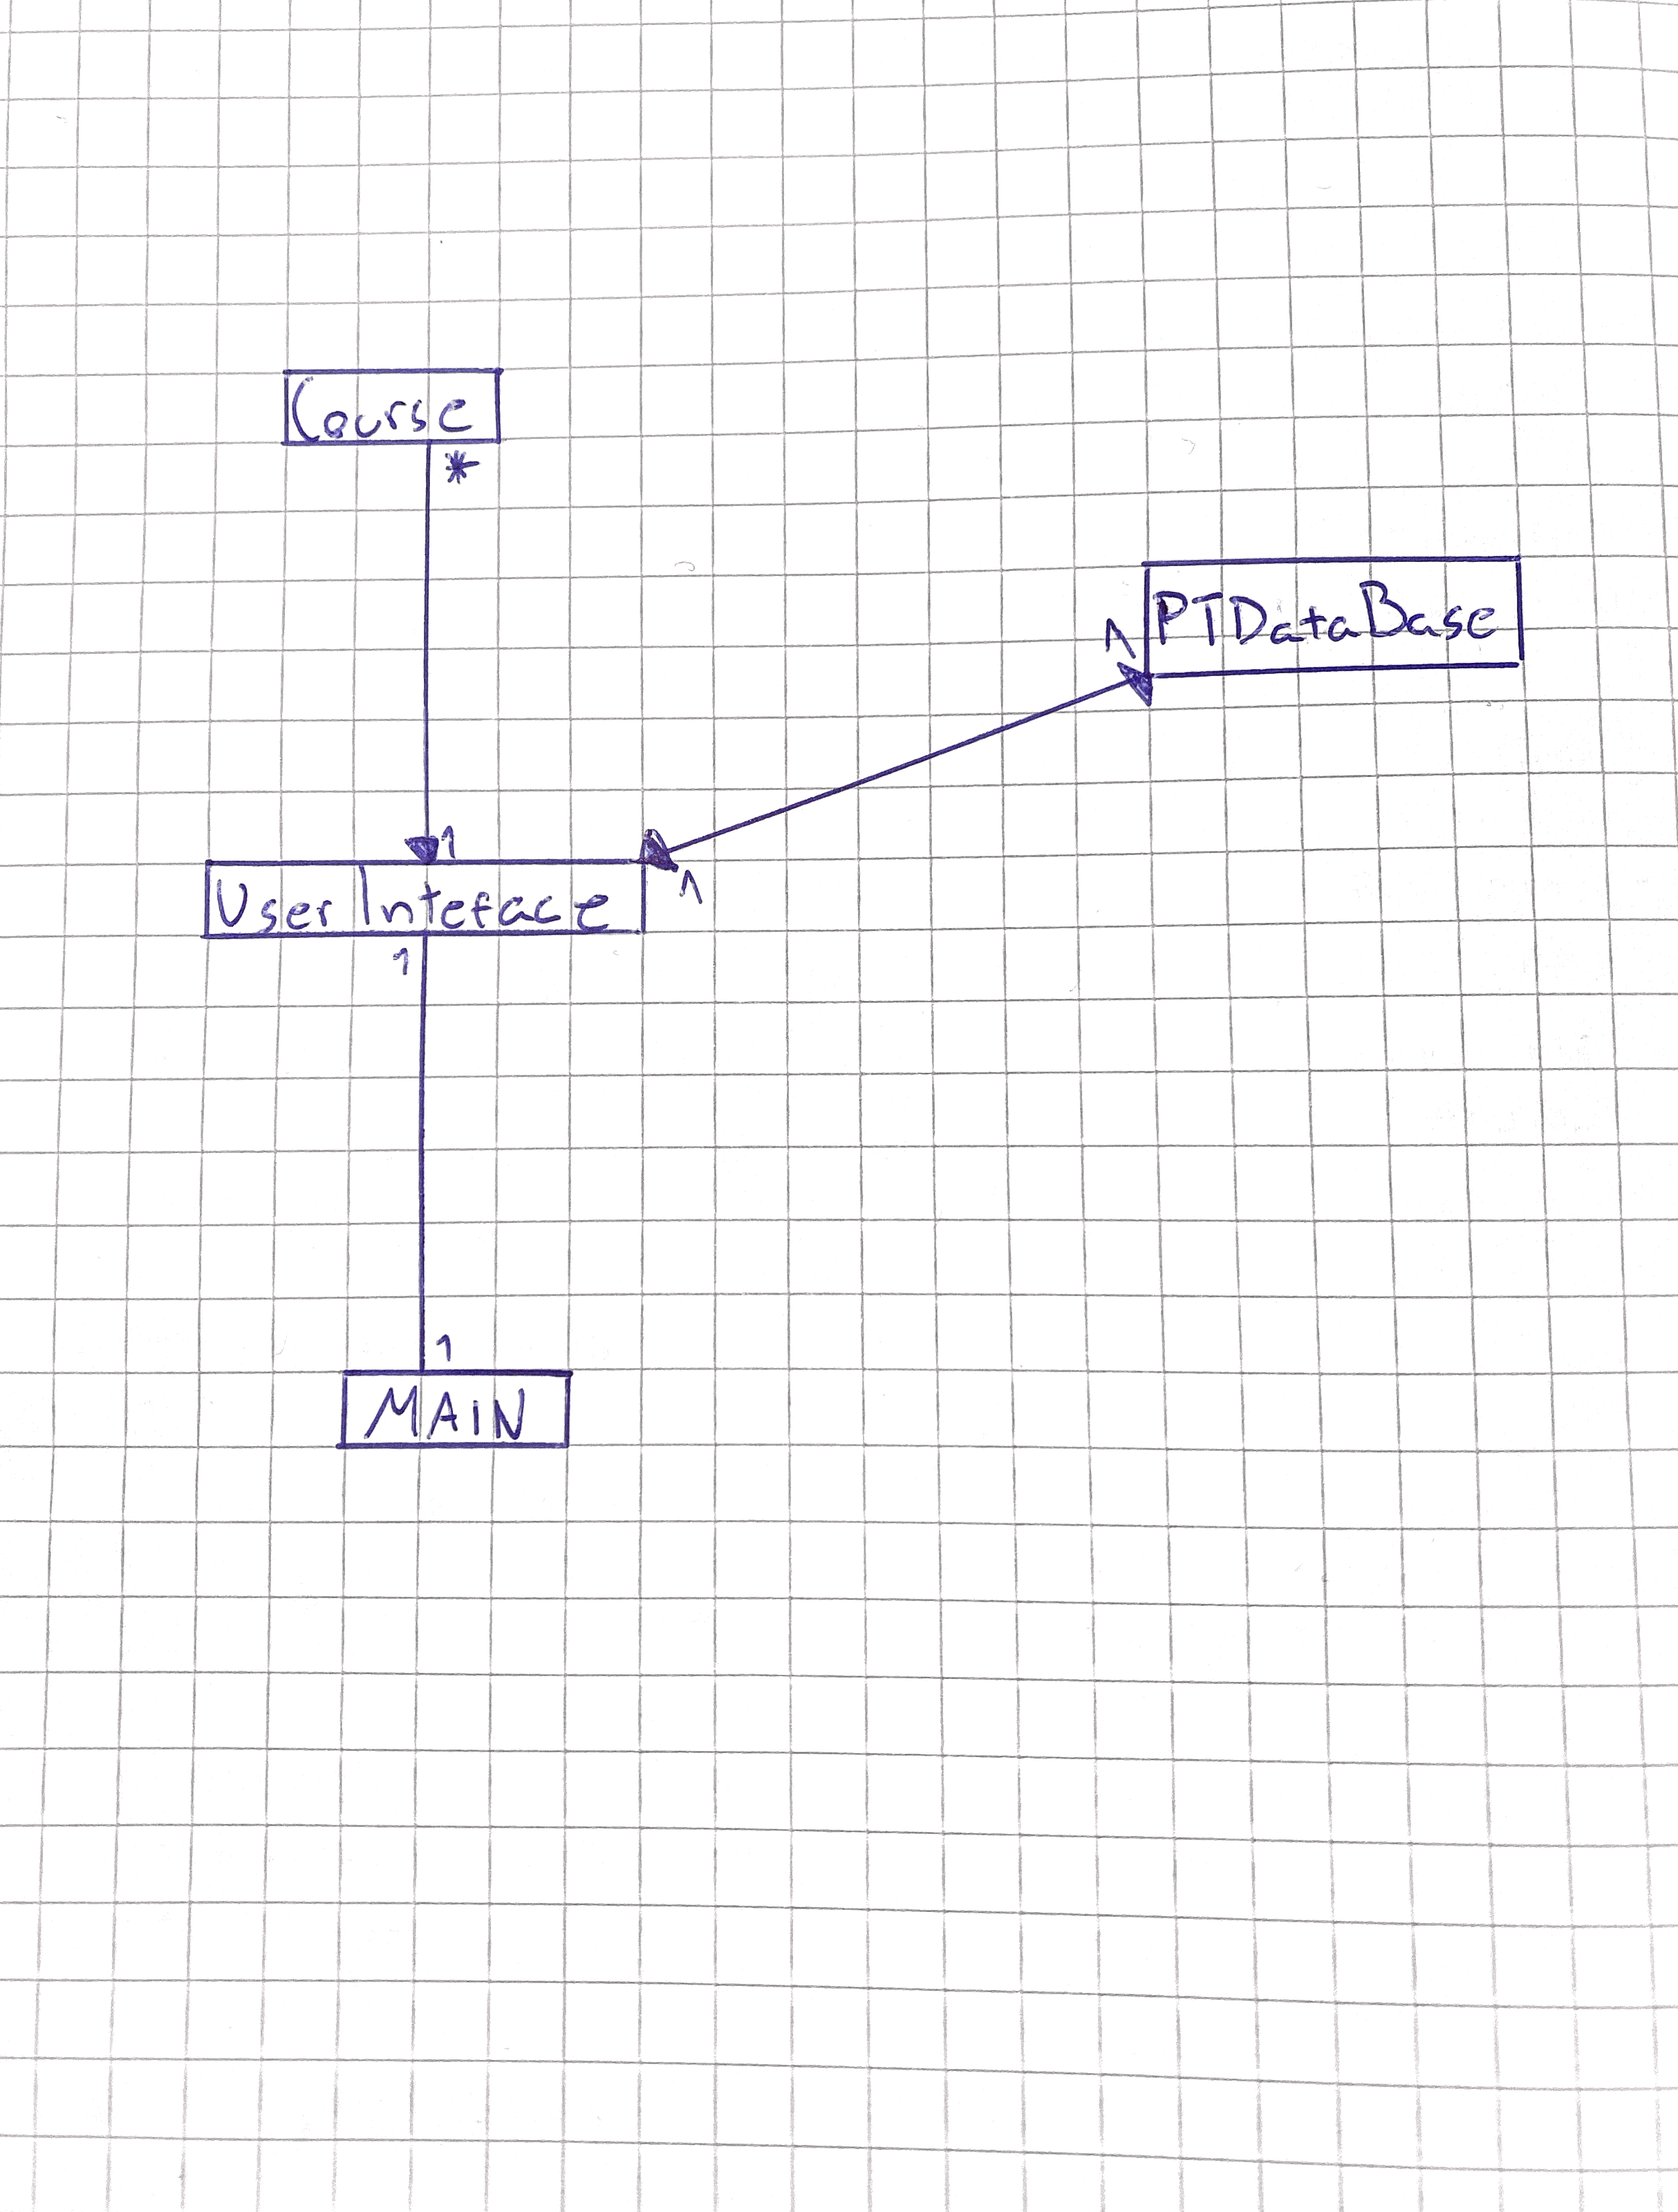 Course
*
PTDataBase
1
1
User Inteface
1
1
1
MAIN